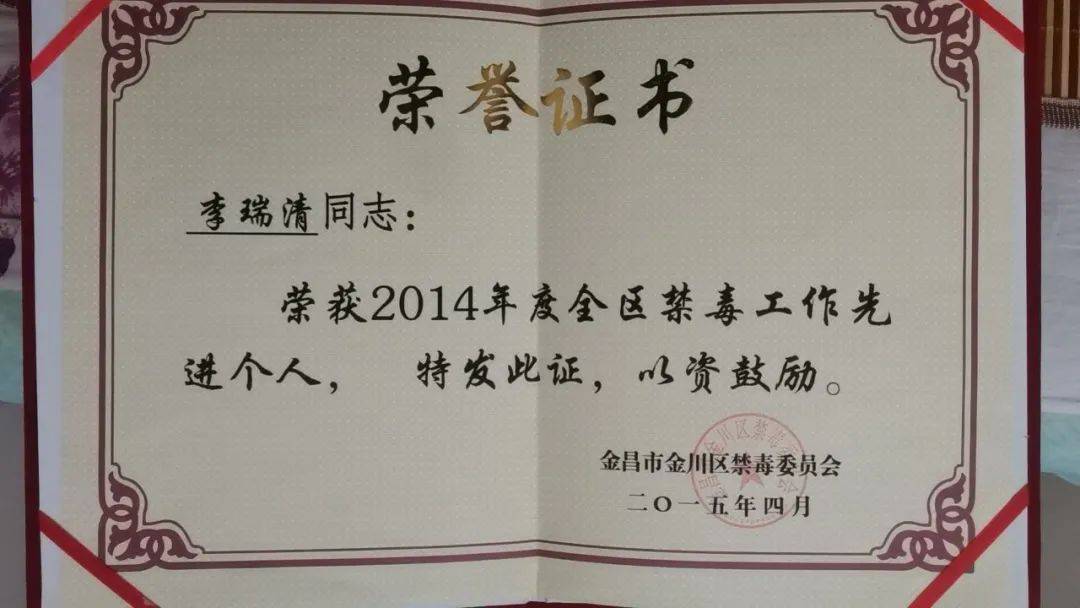 荣誉证书
李瑞清同志：
荣获2014年度全区禁毒工作先
进个人， 特发此证，以资鼓励。
金昌市金川区禁毒委员会
二〇一五年四月